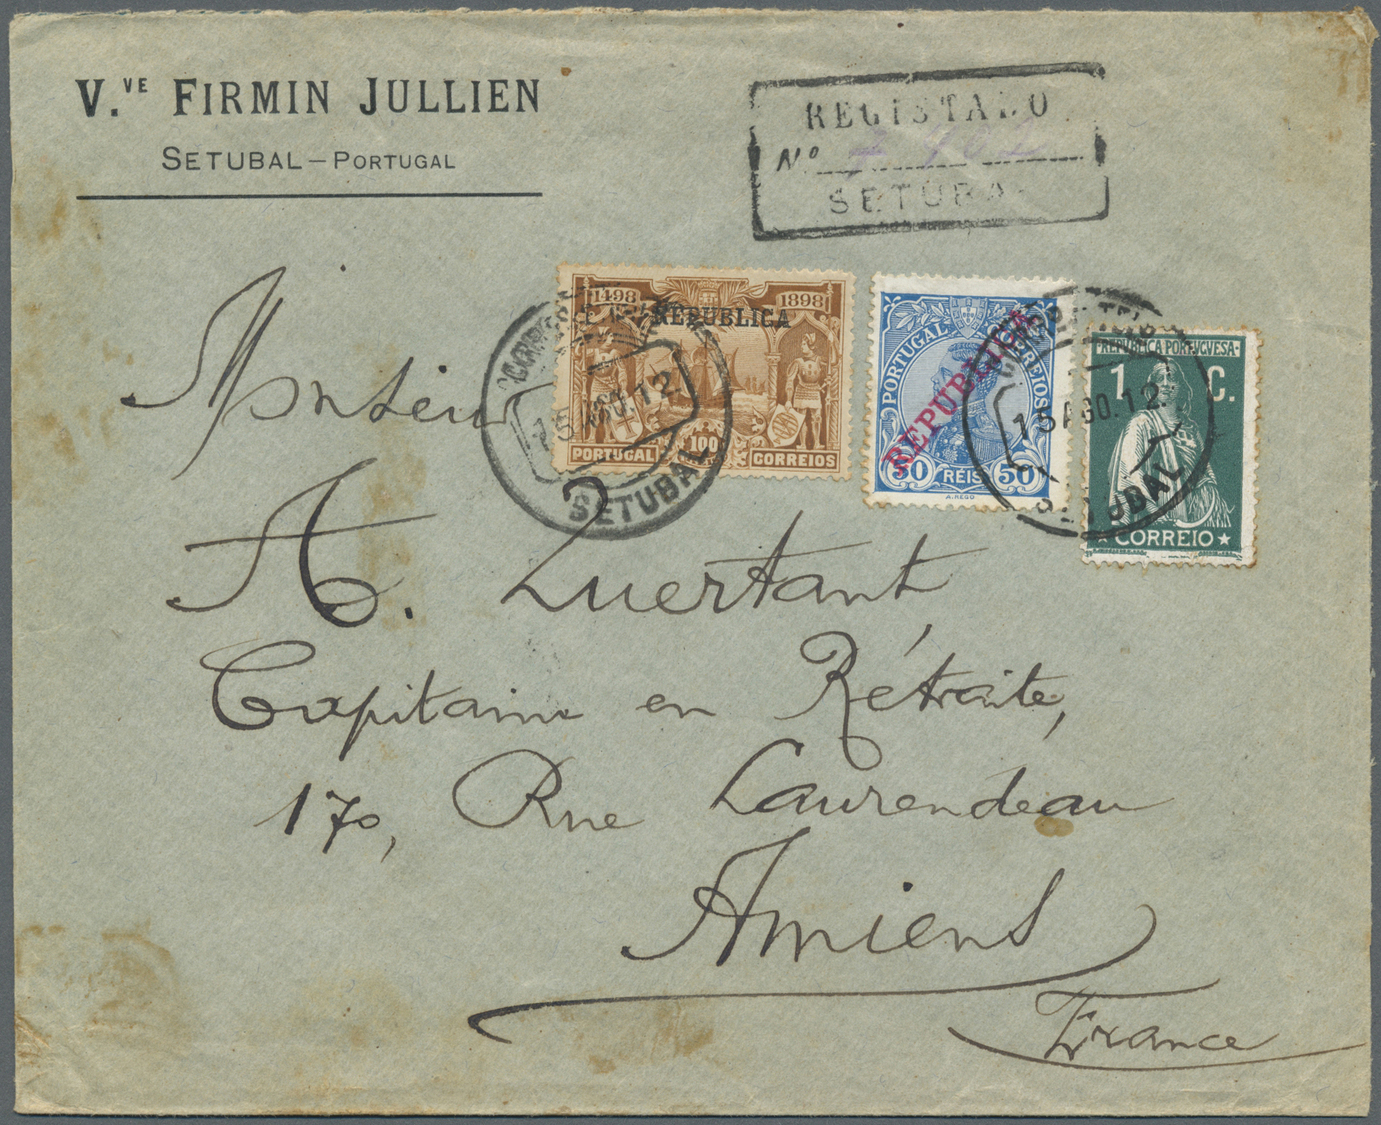 V.VE FIRMIN JULLIEN
SETUBAL – PORTUGAL
REGISTADO
Nº
SETUBAL
1498 1898
REPUBLICA
100
PORTUGAL CORREIOS
15 AGO. 12
SETUBAL
PORTUGAL CORREIOS
REPUBLICA
50 RÉIS 50
A. REGO
15 AGO. 12
SETUBAL
REPUBLICA PORTUGUESA
1 C.
CORREIO
Monsieur
A. Luertant
Capitaine en Rétraite,
170, Rue Laurendeau
Amiens
France